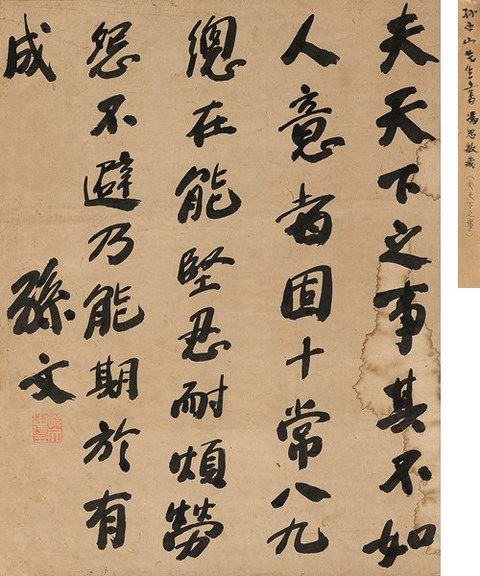 孫中山先生書 馮思敏藏(夫天下之事)
夫天下之事其不如
人意者固十常八九
總在能堅忍耐煩勞
怨不避乃能期於有
成 孫文